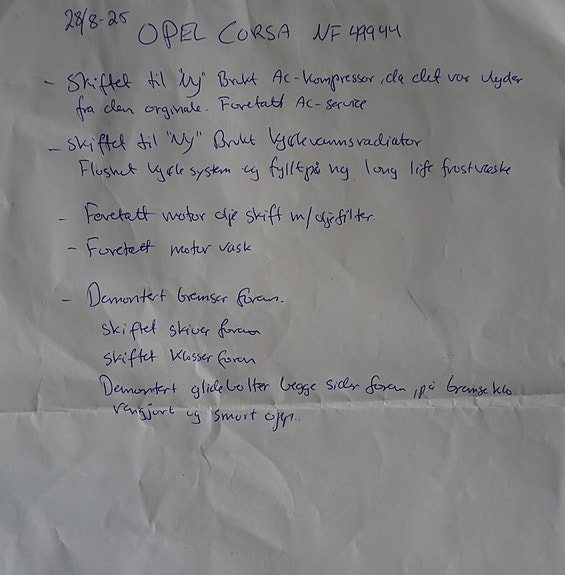 28/8-25
OPEL CORSA NF 49944
- Skiftet til "Ny" Brukt AC-kompressor, da det var ulyder
fra den orginale. Foretatt AC-service
- Skiftet til "Ny" Brukt kjølevannsradiator
Flushet kjølesystem og fyllt på ny long life frostvæske
- Foretatt motor olje skift m/oljefilter.
- Foretatt motor vask
- Demontert bremser foran.
skiftet skiver foran
skiftet klosser foran
Demontert glidebolter begge sider foran, på bremseklo
rengjort og smurt opp.